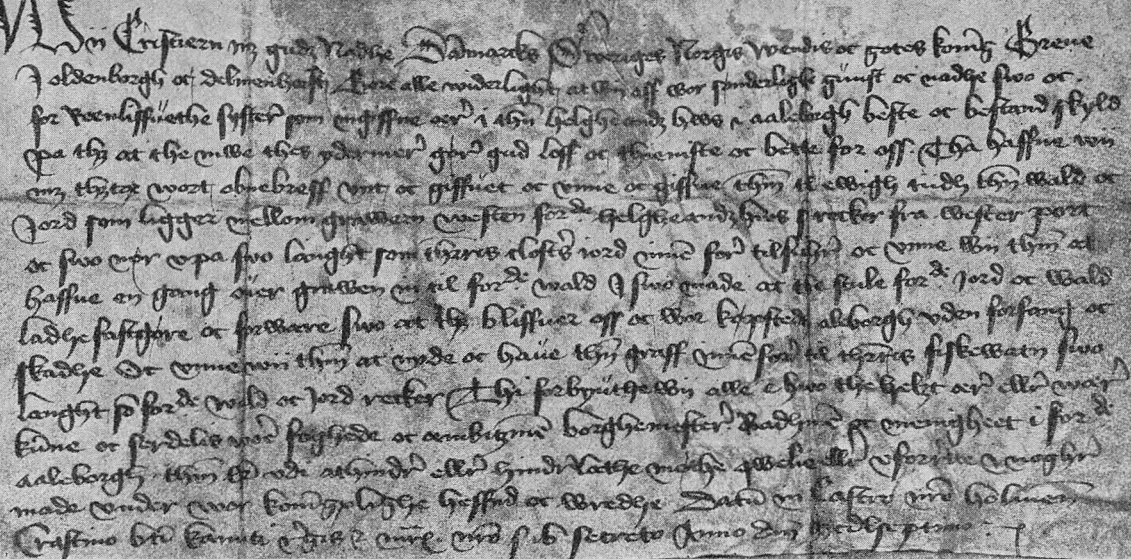 Wii Cristiern mz gudz Nadhe Danmarcks Sweriges Norgis Wendis oc gotes koning Greue
J oldenborgh oc delmenhorst Gøre alle widerlight at wii aff wor sønderligh gunst oc nadhe swo oc
for Renliffuethe syster som ingiffne ær i thn helgheandz hws i aaleborgh beste oc bestand skyld
Pa thz at the mwe thes ydermer gør gud loff oc thieneste oc bethe for oss Tha haffue wii
mz thytte wort obnebreff vnt oc giffuet oc vnne oc giffue thm til ewigh tiidh thn wald oc
Jord som ligger mellom grawen westen forde helgheandzhws strecker fra wester port
oc swo nør vpa swo langht som theris closters iord innen for tilstrecker oc vnne wii thm at
haffue en gong øuer grawen in til forde wald J swo made at the skule forde Jord oc wald
ladhe fastgøre oc forware swo at thz bliffuer oss oc wor køpstedh aleborgh vden forfang oc
skadhe Oc vnne wii thm at nyde oc haue thn graff innen for til theris fiskewatn swo
langht so forde wald oc Jord recker Thi forbyuthe wii alle e hwo the helzt ær eller wær
kunne oc serdelis wore foghede oc embitzmen borghemester Radhmen oc menigheet i forde
aaleborgh thm her vdi athindre eller hindre lathe møthe qwelie eller vforrette i noghre
made vnder wor koninglighe heffnd oc wredhe Datum in castro nostro holmen
Crastino bti kanuti regis et martiris nostro sub secreto Anno dni mcdlseptimo